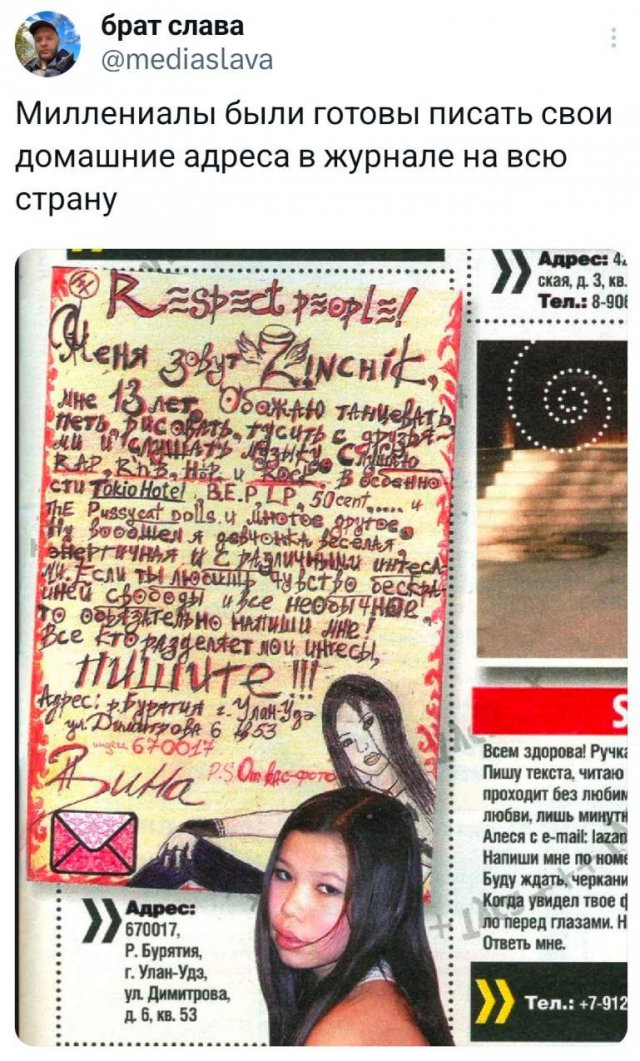 брат слава
@mediaslava
Миллениалы были готовы писать свои
домашние адреса в журнале на всю
страну
Respect people!
Меня зовут Zinchik,
мне 13 лет. Обожаю танцевать
петь, рисовать, тусить с друзья-
ми и слушать музыку. Слушаю
RAP, RnB, Hop и Rock. В особенно
сти Tokio Hotel, B.E.P, LP, 50cent, .... и
THE Pussycat Dolls.и многое другое.
Ну вообщем я девчонка веселая,
энергичная и с различными интеса-
ми. Если ты любишь чувство бескра-
йней свободы и все необычное,
то обязательно напиши мне!
Все кто разделяет мои интесы,
пишите!!!
Адрес: р.Бурятия г. Улан-Удэ
ул.Димитрова 6 53
индекс 670017
Зина
P.S От вас-фото
Адрес:
670017,
Р. Бурятия,
г. Улан-Удэ,
ул. Димитрова,
д. 6, кв. 53
Адрес: 4
ская, д. 3, кв.
Тел.: 8-906
S
Всем здорова! Ручка
Пишу текста, читаю
проходит без любим
любви, лишь минутн
Алеся с e-mail: lazan
Напиши мне по номе
Буду ждать, черкани
Когда увидел твое ф
ло перед глазами. Н
Ответь мне.
Тел.: +7-912